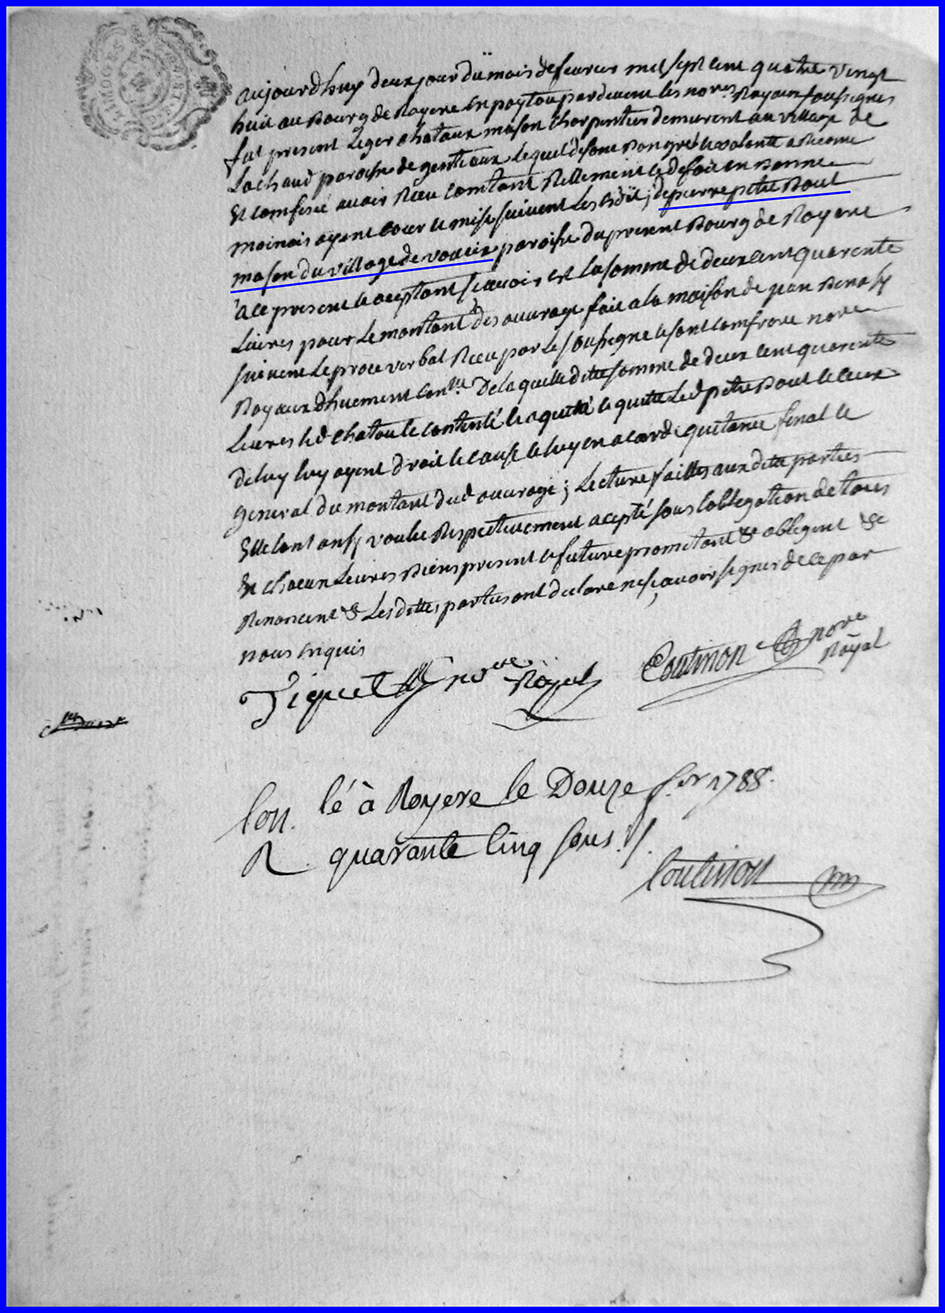 LIMOGES
aujourdhuy deux jour du mois de fevrier mil sept cent quatre vingt
huit au Bourg de Royere en poytou pardevent les nores Royaux sousignes
fut present Leger chataux mason charpentier demurent au village de
Lachaud paroise de gentioux lequel de son bon gré et volonte a Reconu
et comfesé avoir Reçu comtant Rellement et de fait en bonne
monois ayent cour et mise suivent les edit; de pierre petit Bout
mason du village de vauxis paroise du present Bourg de Royere
a ce present et aceptant scavoir est la somme de deux cent quarente
Livres pour le montant des ouvrage fait a la maison de jean Benassy
suivent le proce verbal Recu par le sousigne et son comfrere nore
Royaux dhuement conlle De laquelle ditte somme de deux cent quarente
Livres led chatou le contenté et aquité et quitte led petit Bout et ceux
de luy ayent droit et cause et luy en acorde quitance final et
general du montant dud ouvrage; Lecture faittes aux ditte parties
Elle lont ansy voulu Respectivement acepté sous lobligation de tous
et chacun leures Biens present et future prometant & obligent &
Renoncent & Les dittes parties ont declare ne scavoir signer de ce par
nous enquis
nore Royal Coutinon nore
Royal
Con. lé à Royere le Douze fer 1788.
R quarante cinq sous
Coutinon